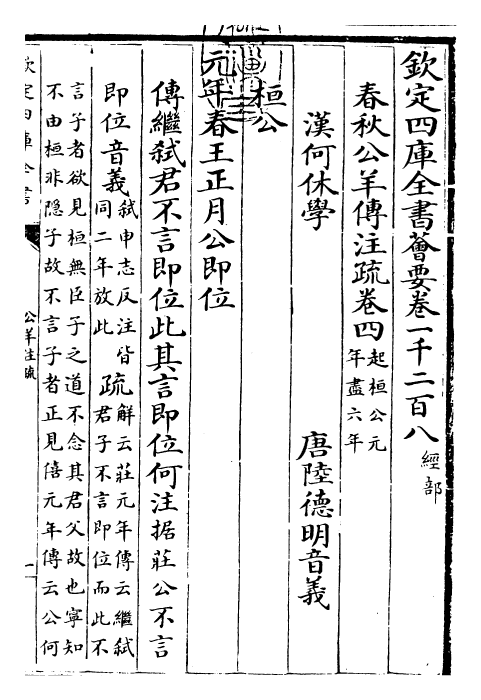 欽定四庫全書薈要卷一千二百八 經部
春秋公羊傳注疏卷四 起桓公元
年盡六年
漢何休學 唐陸德明音義
桓公
元年春王正月公即位
傳繼弒君不言即位此其言即位何注据莊公不言
即位音義 弒申志反注皆
同二年放此 疏 解云莊元年傳云繼弒
君子不言即位而此不
言子者欲見桓無臣子之道不念其君父故也寧知
不由桓非隱子故不言子者正見僖元年傳云公何
欽定四庫全書
公羊注疏
一